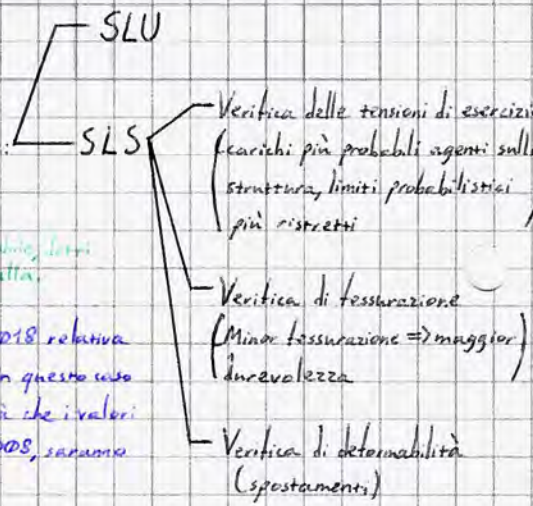 SLU
: SLS
Verifica delle tensioni di esercizi
(carichi più probabili agenti sull
struttura, limiti probabilistici
più ristretti)
Verifica di fessurazione
(Minor fessurazione => maggior
durevolezza)
Verifica di deformabilità
(spostamenti)
018 relativa
n questo caso
à che i valori
saranno